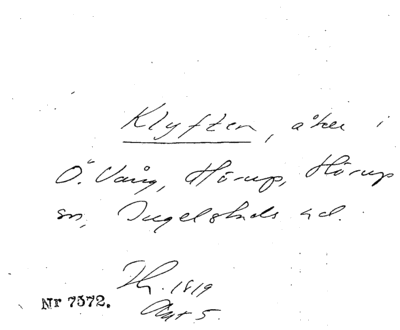 Klyften, åker i
Ö. Vång, Hörup, Hörup
sn, Ingelstads hd.
Nr 7372.
1819
Akt 5.